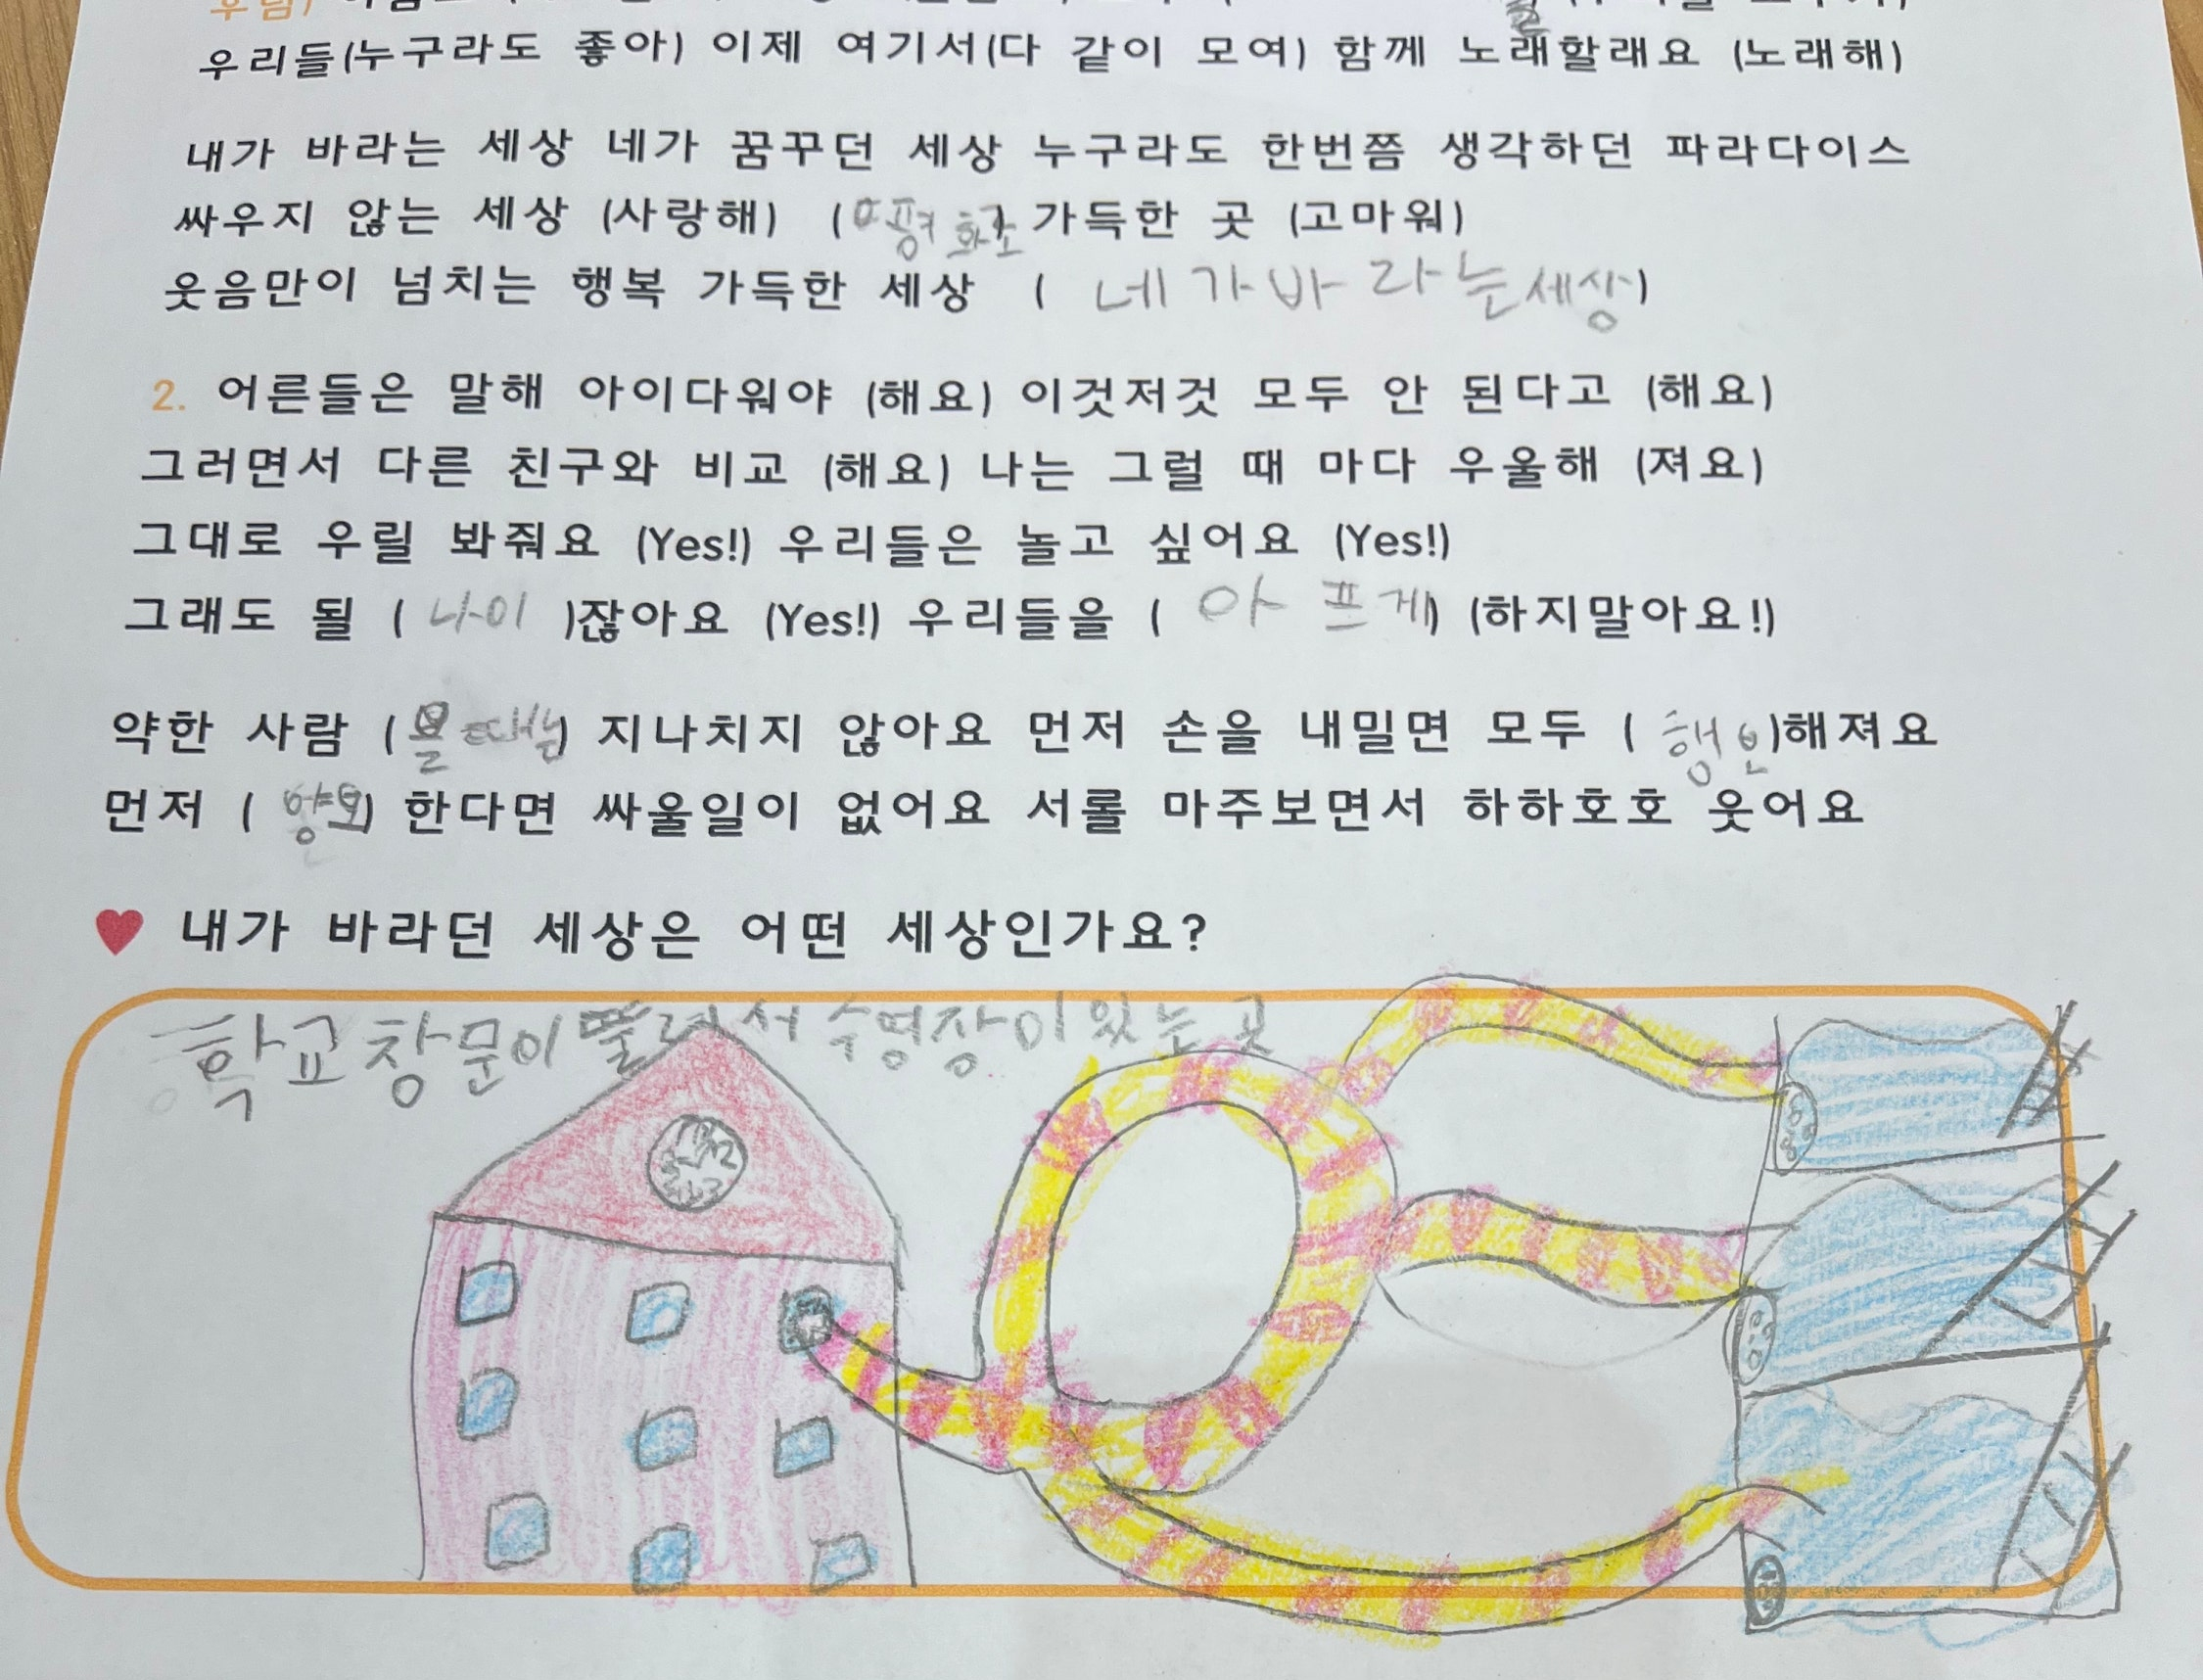 우리들(누구라도 좋아) 이제 여기서(다 같이 모여) 함께 노래할래요 (노래해)
내가 바라는 세상 네가 꿈꾸던 세상 누구라도 한번쯤 생각하던 파라다이스
싸우지 않는 세상 (사랑해) ( 평화로 가득한 곳 (고마워)
웃음만이 넘치는 행복 가득한 세상 ( 네가바라는세상)
2. 어른들은 말해 아이다워야 (해요) 이것저것 모두 안 된다고 (해요)
그러면서 다른 친구와 비교 (해요) 나는 그럴 때 마다 우울해 (져요)
그대로 우릴 봐줘요 (Yes!) 우리들은 놀고 싶어요 (Yes!)
그래도 될 ( 나이 )잖아요 (Yes!) 우리들을 ( 아프게) (하지말아요!)
약한 사람 ( 볼때는) 지나치지 않아요 먼저 손을 내밀면 모두 ( )해져요
먼저 ( ) 한다면 싸울일이 없어요 서롤 마주보면서 하하호호 웃어요
♥ 내가 바라던 세상은 어떤 세상인가요?
학교창문이 뚤려서 수영장이있는곳